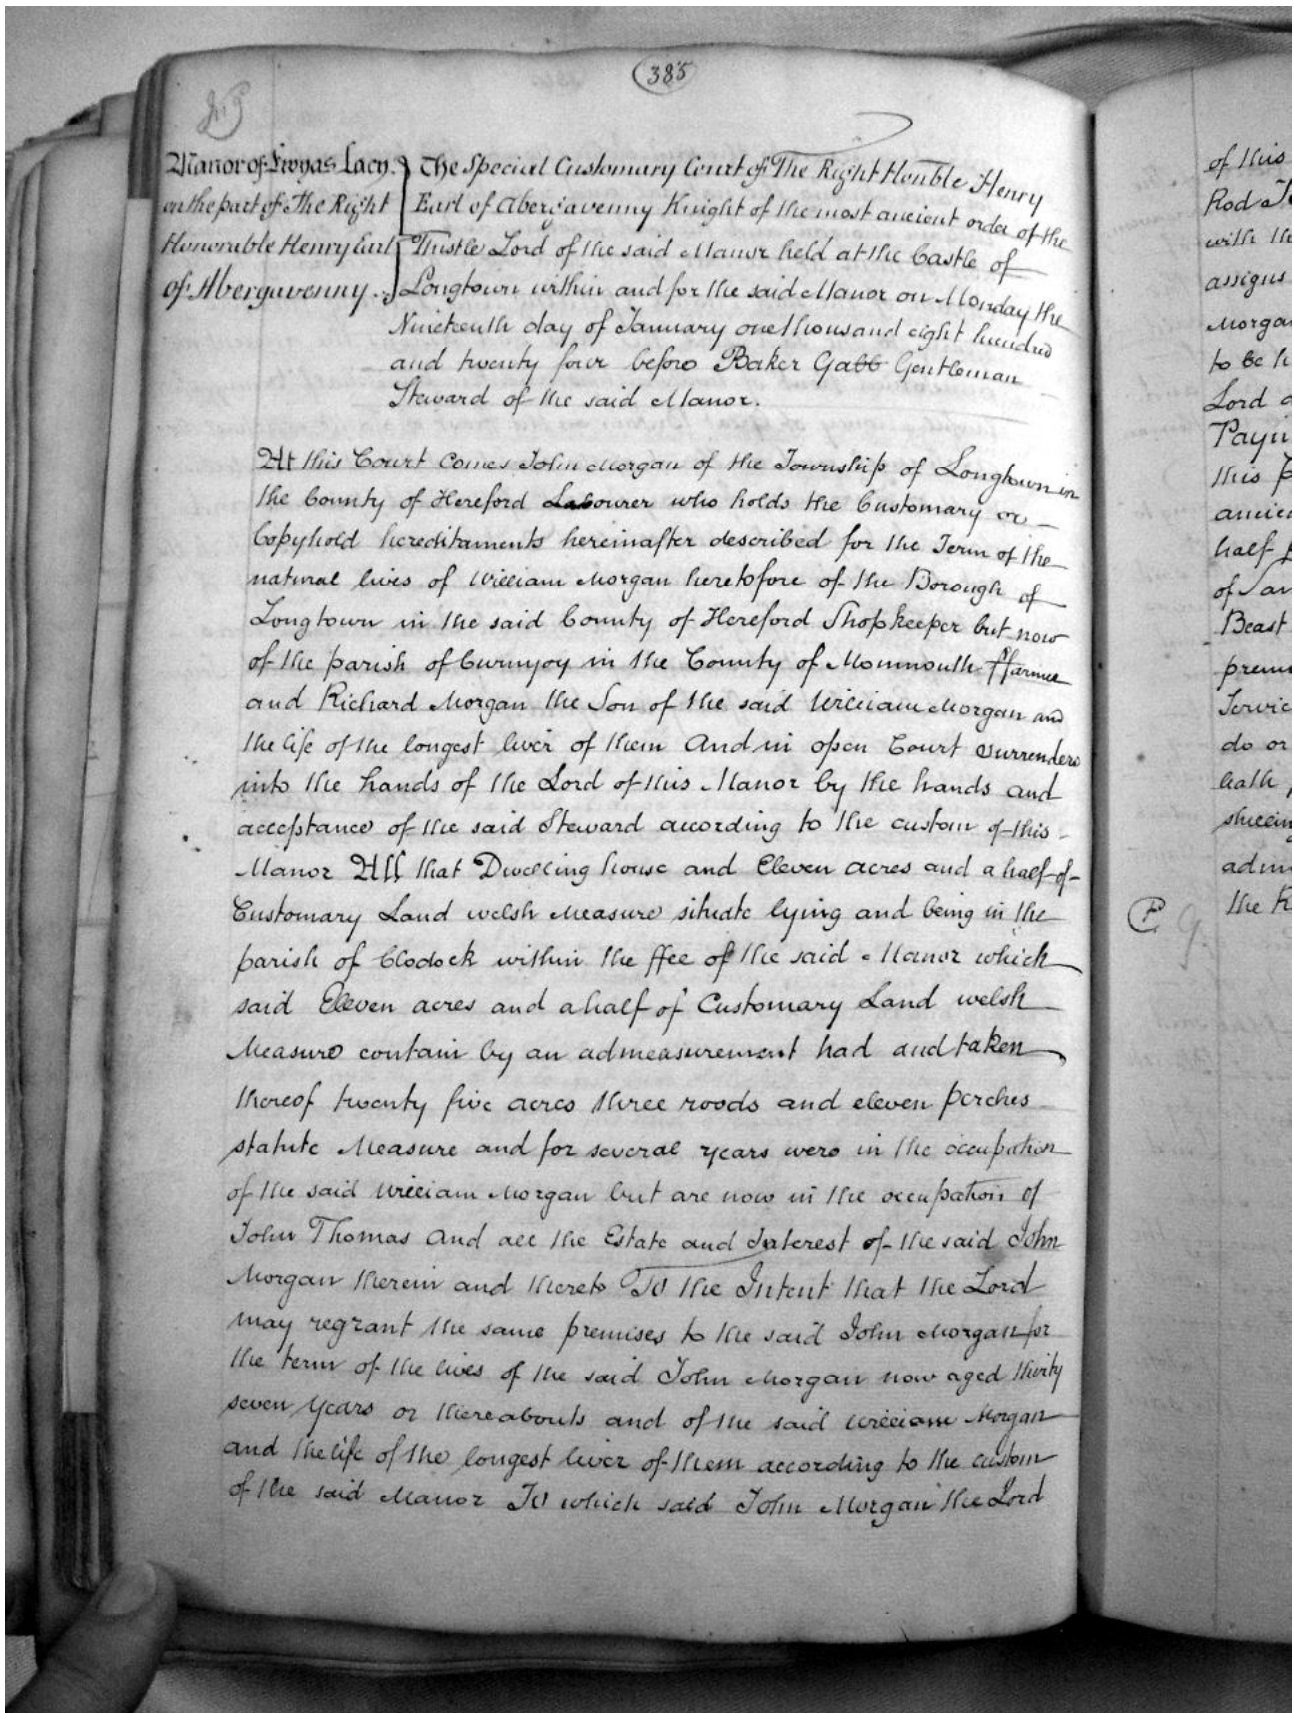 385
Manor of Ewyas Lacy
on the part of The Right
Honorable Henry Earl
of Abergavenny
The Special Customary Court of The Right Honble Henry
Earl of Abergavenny Knight of the most ancient order of the
Thistle Lord of the said Manor held at the Castle of
Longtown within and for the said Manor on Monday the
Nineteenth day of January one thousand eight hundred
and twenty four before Baker Gabb Gentleman
Steward of the said Manor.
At this Court comes John Morgan of the Township of Longtown in
the County of Hereford Labourer who holds the Customary or
Copyhold hereditaments hereinafter described for the Term of the
natural lives of William Morgan heretofore of the Borough of
Longtown in the said County of Hereford Shopkeeper but now
of the parish of Cwmyoy in the County of Monmouth ffarmer
and Richard Morgan the Son of the said William Morgan and
the life of the longest liver of them And in open Court surrenders
into the hands of the Lord of this Manor by the hands and
acceptance of the said Steward according to the custom of this
Manor All that Dwelling house and Eleven acres and a half of
Customary Land welsh Measure situate lying and being in the
parish of Clodock within the ffee of the said Manor which
said Eleven acres and a half of Customary Land welsh
Measure contain by an admeasurement had and taken
thereof twenty five acres three roods and eleven perches
statute Measure and for several years were in the occupation
of the said William Morgan but are now in the occupation of
John Thomas And all the Estate and Interest of the said John
Morgan therein and thereto To the Intent that the Lord
may regrant the same premises to the said John Morgan for
the term of the lives of the said John Morgan now aged thirty
seven years or thereabouts and of the said William Morgan
and the life of the longest liver of them according to the custom
of the said Manor To which said John Morgan the Lord
of this
Rod
with
assigns
to be
Lord
this
half
of
Beast
do or
the